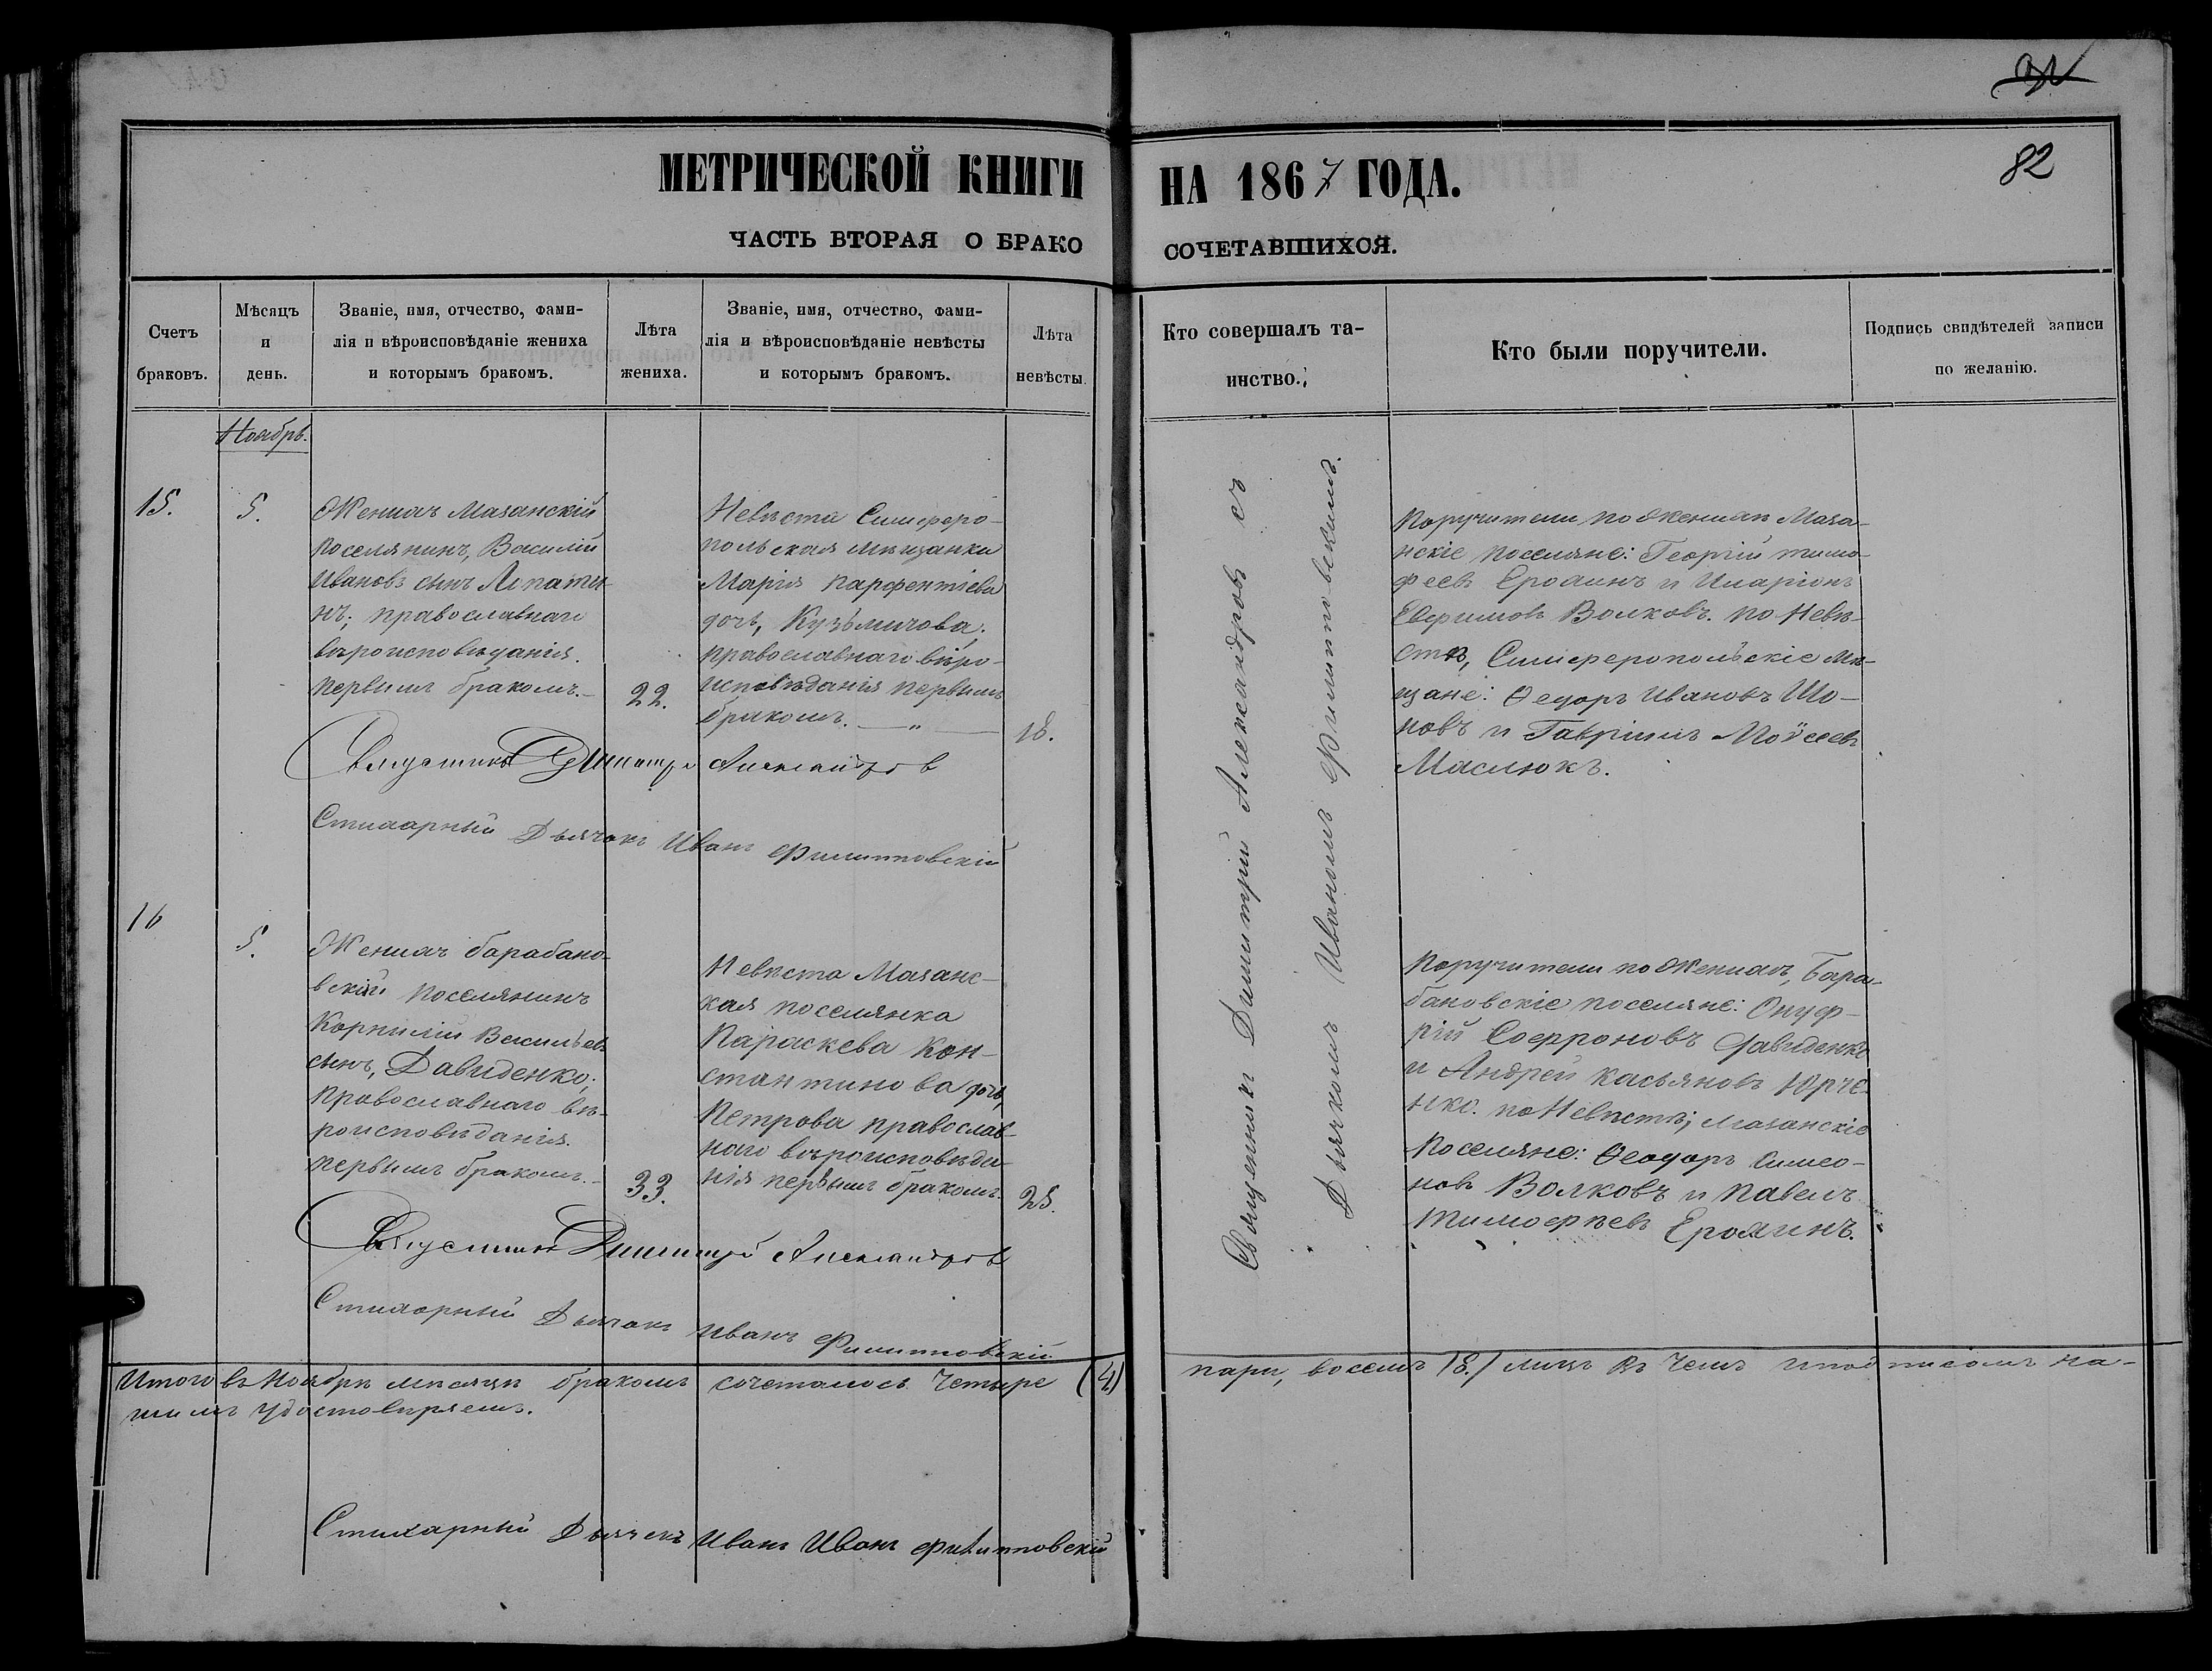 82
МЕТРИЧЕСКОЙ КНИГИ НА 1867 ГОДА.
ЧАСТЬ ВТОРАЯ О БРАКОСОЧЕТАВШИХСЯ.
Счетъ
браковъ.
Мѣсяцъ
и
день.
Званіе, имя, отчество, фами-
лія и вѣроисповѣданіе жениха
и которымъ бракомъ.
Лѣта
жениха.
Званіе, имя, отчество, фами-
лія и вѣроисповѣданіе невѣсты
и которымъ бракомъ.
Лѣта
невѣсты.
Кто совершалъ та-
инство.
Кто были поручители.
Подпись свидѣтелей записи
по желанію.
Ноябрь.
15.
5.
Женихъ Мазанскій
поселянинъ, Василій
Ивановъ сынъ Лопати-
нъ; православнаго
вѣроисповѣданія.
первымъ бракомъ.
22.
Невѣста Симферо-
польская мѣщанка
Марія Парфентіева
дочь, Кузьмичова.
православнаго вѣро-
исповѣданія первымъ
бракомъ.
18.
Священникъ Димитрій Александровъ
Стихарный Дьячокъ Иванъ Филипповскій
Священникъ Димитрій Александровъ съ
Дьячкомъ Иваномъ Филипповскимъ.
Поручители по Женихѣ Маза-
нскіе поселяне: Георгій Тимо-
феевъ Ероминъ и Иларіонъ
Евфимовъ Волковъ. по Невѣ-
стѣ, Симферопольскіе Мѣ-
щане: Ѳедоръ Ивановъ Шо-
новъ и Гавріилъ Моѵсеевъ
Маслюкъ.
16
5.
Женихъ барабано-
вскій поселянинъ
Корнилій Васильевъ
сынъ, Давиденко;
Православнаго вѣ-
роисповѣданія.
первымъ бракомъ.
33.
Невѣста Мазанс-
кая поселянка
Параскева Кон-
стантинова дочь,
Петрова православ-
наго вѣроисповѣда-
нія первымъ бракомъ.
25.
Священникъ Димитрій Александровъ
Стихарный Дьячокъ Иванъ Филипповскій
Поручители по Женихѣ, Бара-
бановскіе поселяне: Онуф-
рій Софроновъ Давиденко
и Андрей Касьяновъ Юрче-
нко. по Невѣстѣ; Мазанскіе
Поселяне: Ѳеодоръ Симео-
новъ Волковъ и Павелъ
Тимофѣевъ Ероминъ.
Итого въ Ноябрѣ мѣсяцѣ бракомъ сочеталось Четыре (4) пари, восемь (8.) лицъ въ чемъ и подписомъ на-
шимъ удостовѣряемъ.
Стихарный Дьячекъ Иванъ Иванъ Филипповскій